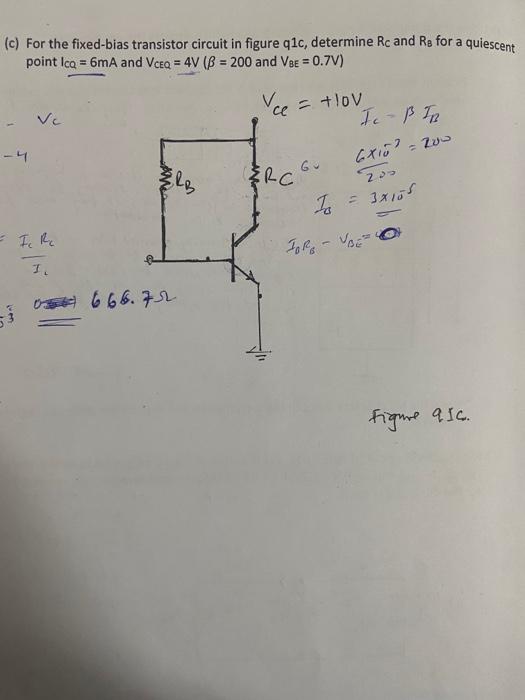 (c) For the fixed-bias transistor circuit in figure q1c, determine RC and RB for a quiescent
point ICQ = 6mA and VCEQ = 4V (β = 200 and VBE = 0.7V)
Vce = +10V
- Vc
Ic = β IB
-4
6x10^-3 = 200
200
RB
RC
6v
IB = 3x10^-5
= Ic Rc
IBRB - VBE =
666.7Ω
Figure q1c.